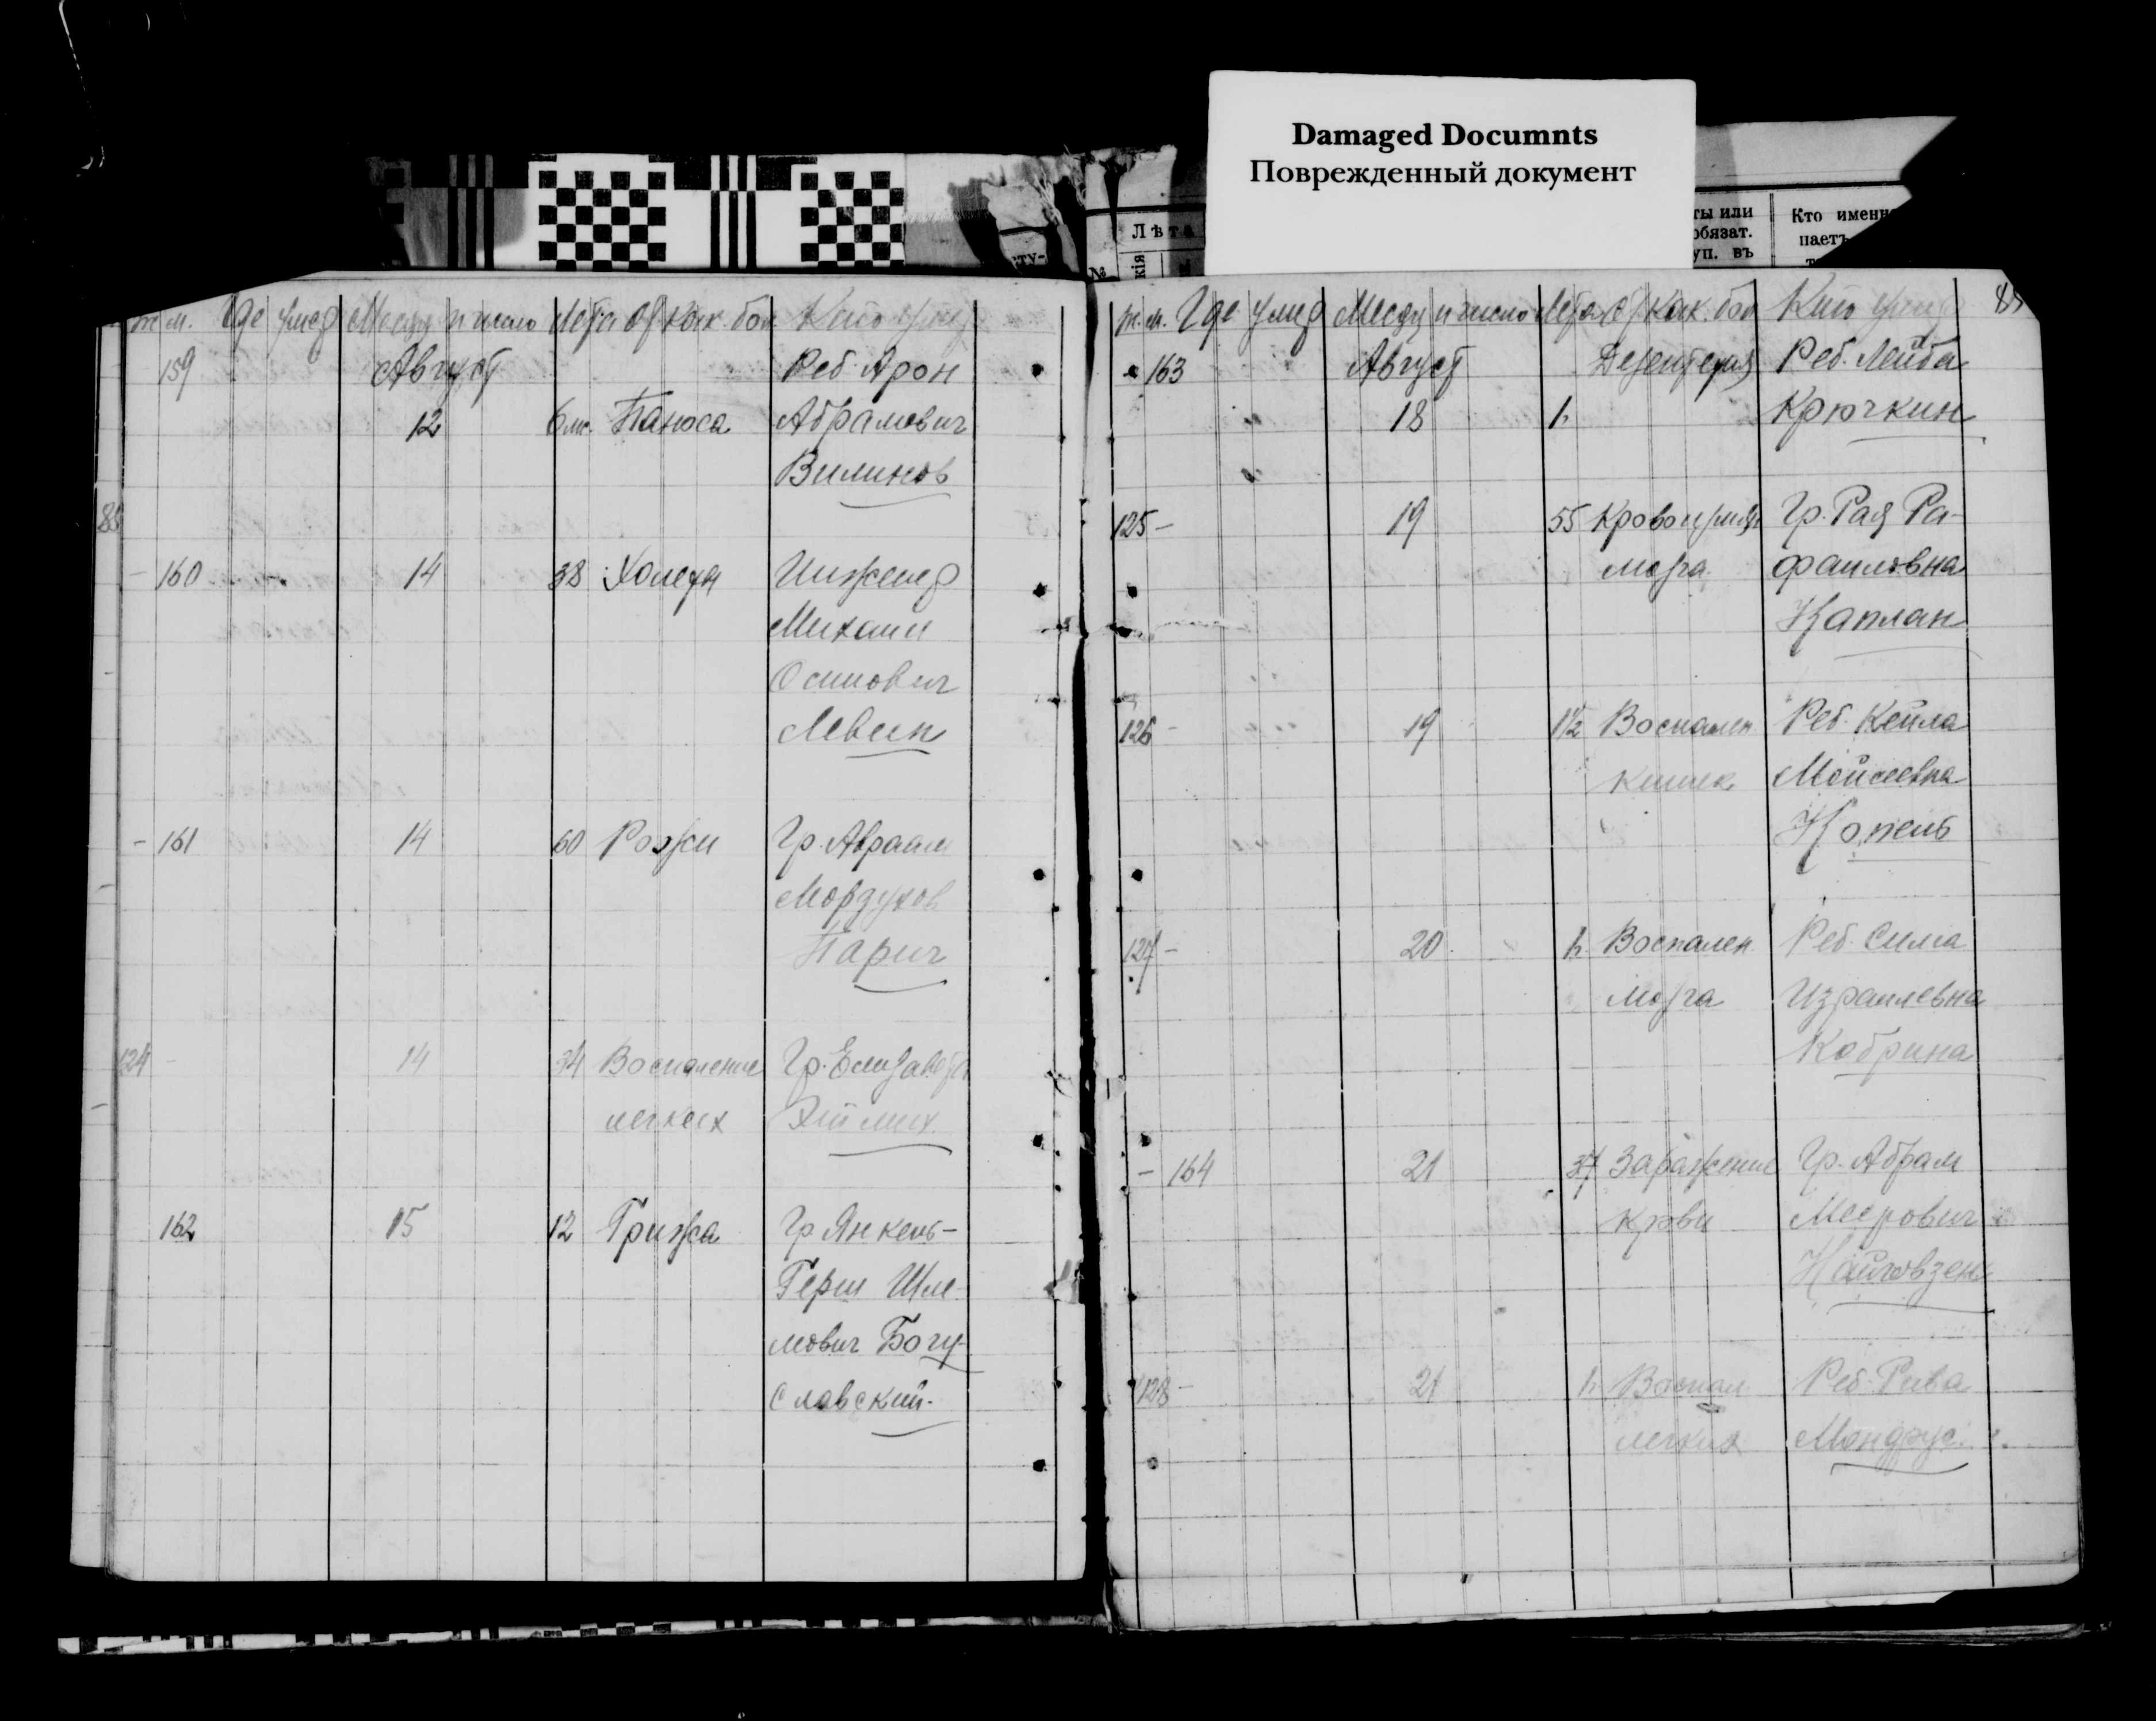 Damaged Documnts
Поврежденный документ
Лѣта
ты или
обязат.
уп. въ
Кто именн
паетъ
сту-
№
кія
ж. м. Где умер Месяц и число Лета От как. бол. Кто умер
159 Август Реб. Арон
12 6 мс. Паноса Абрамович
Вилинов
85
- 160 14 38 Холера Инженер
Михаил
Осипович
Левин
- 161 14 60 Рожи Гр. Авраам
Мордухов
Парич
124 - 14 34 Воспаление Гр. Елизавета
легких
162 15 12 Грижа Гр Янкель-
Герш Шле-
мович Богу-
славский.
ж. м. Где умер Месяц и число Лета От Как. бол Кто умер 85
163 Август Дезентерия Реб. Лейба
18 1. Крючкин
125 - 19 55 Кровоизлия Гр. Рая Ра-
мозга фаиловна
Каплан
126 - 19 1½ Воспален Реб. Кейла
кишек Мойсеевна
Копель
127 - 20 1. Воспален Реб. Сима
мозга Израилевна
Кобрина
- 164 21 37 Заражение Гр. Абрам
крови Меерович
128 - 21 1. Воспал Реб. Рива
легких Мондрус.